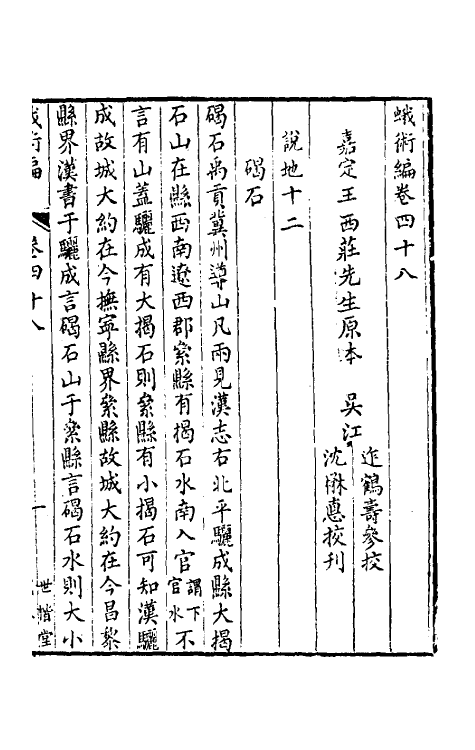 蛾術編卷四十八
嘉定王西莊先生原本　吳江
迮鶴壽參挍
沈楙悳挍刊
說地十二
碣石
碣石禹貢冀州導山凡兩見漢志右北平驪成縣大揭
石山在縣西南遼西郡絫縣有揭石水南入官謂下官水不
言有山蓋驪成有大揭石則絫縣有小揭石可知漢驪
成故城大約在今撫寧縣界絫縣故城大約在今昌黎
縣界漢書于驪成言碣石山于絫縣言碣石水則大小
蛾術編
卷四十八
一
世楷堂